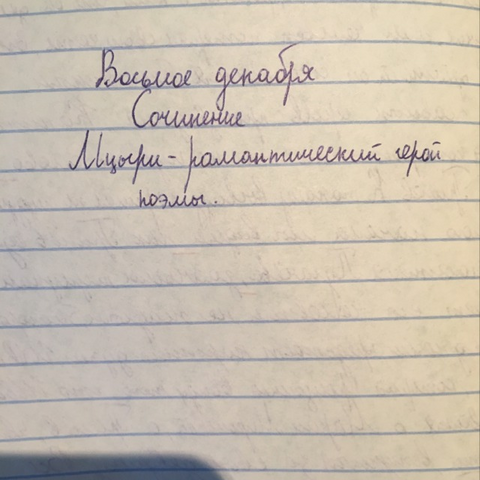 Восьмое декабря
Сочинение
Мцыри - романтический герой
поэмы.